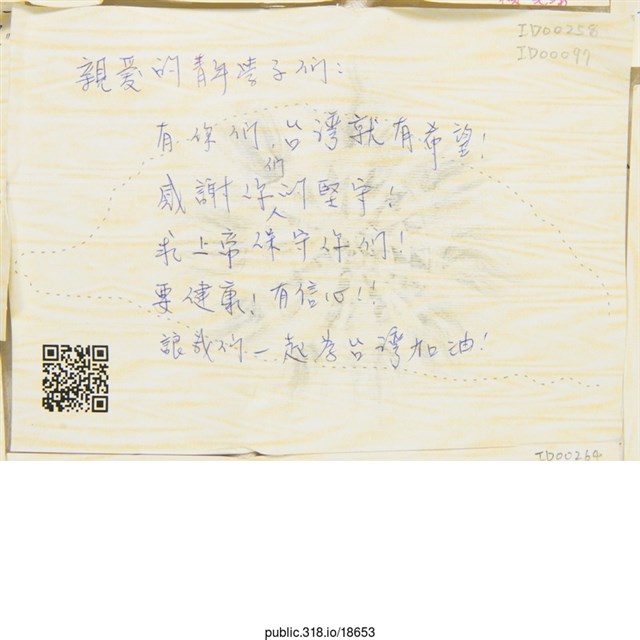 ID00258
ID00097
親愛的青年學子們：
有你們，台灣就有希望！
感謝你們的堅守！
求上帝保守你們！
要健康！有信心！！
讓我們一起為台灣加油！
ID00264
public.318.io/18653